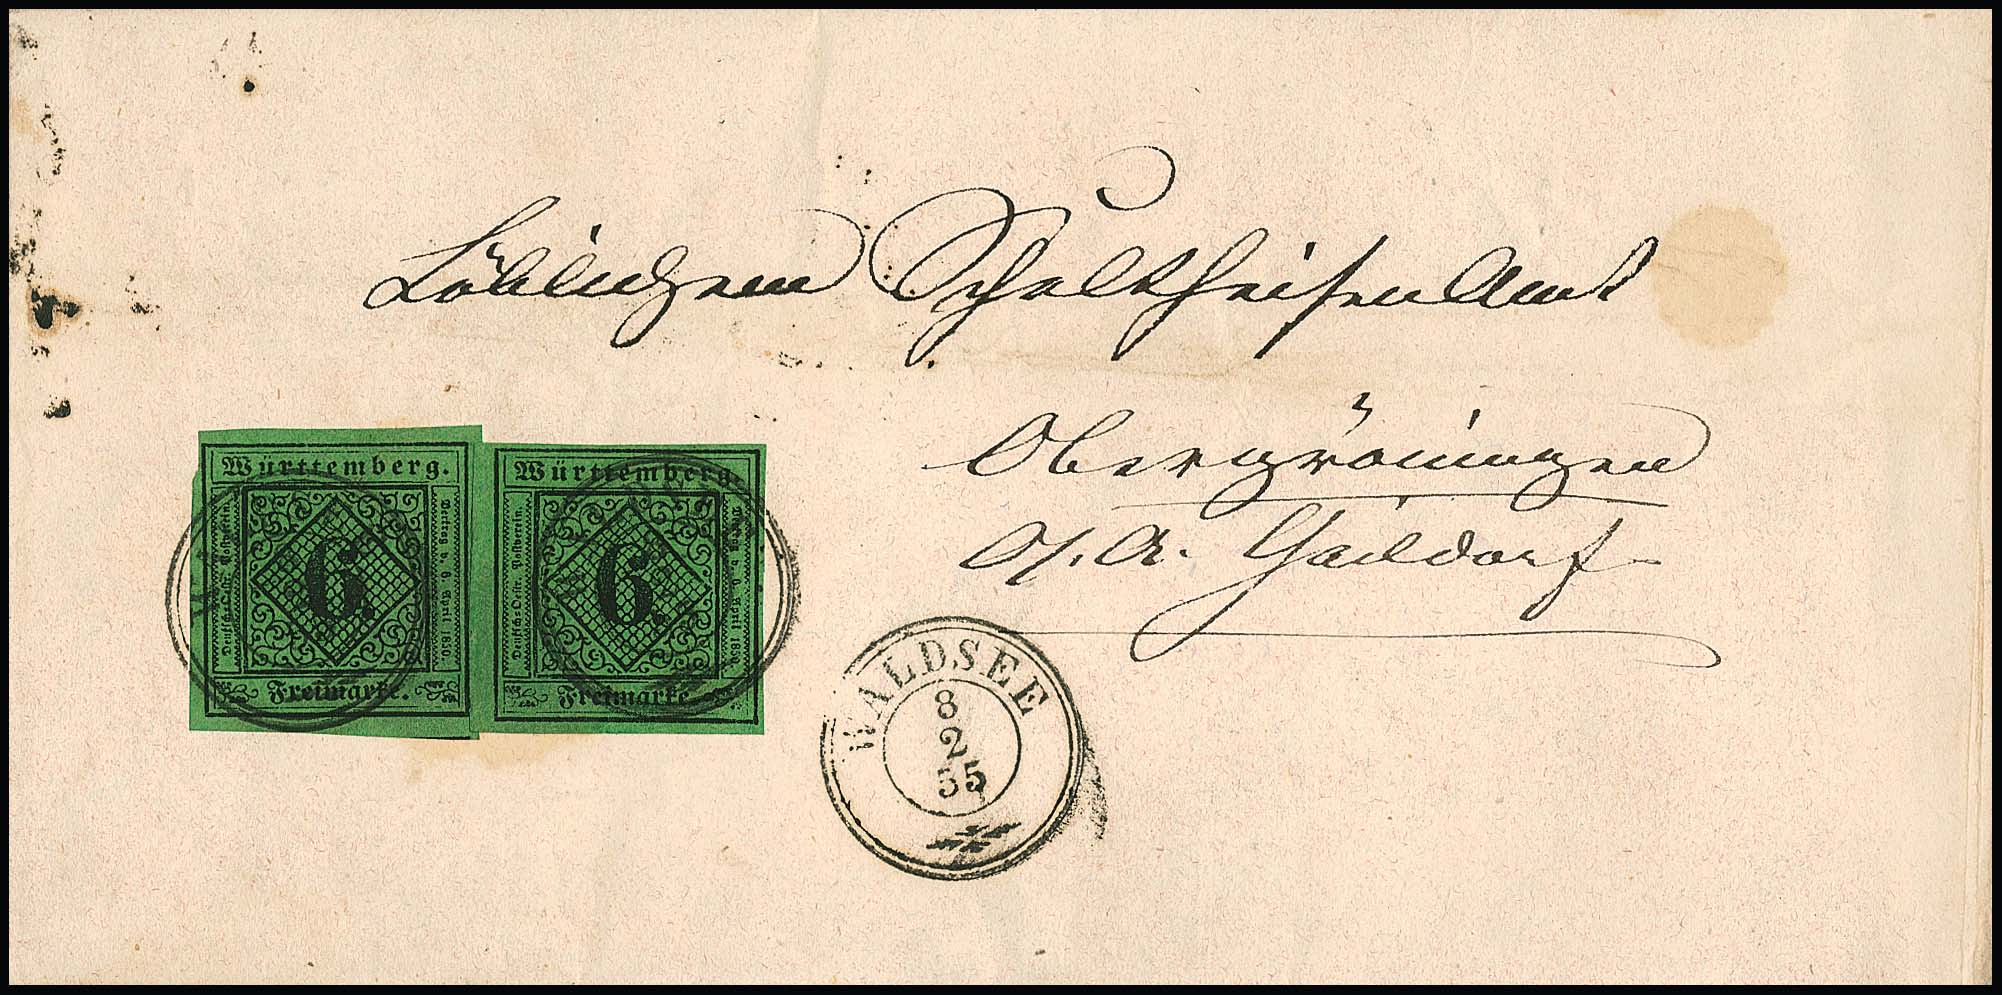 Löblichem Schultheisen Amt
Obergröningen
O/. A. Gaildorf
Württemberg.
Deutsch-Oestr. Postverein.
6.
Vertrag v. 6. April 1850.
Freimarke.
Württemberg.
Deutsch-Oestr. Postverein.
6.
Vertrag v. 6. April 1850.
Freimarke.
WALDSEE
8
2
55